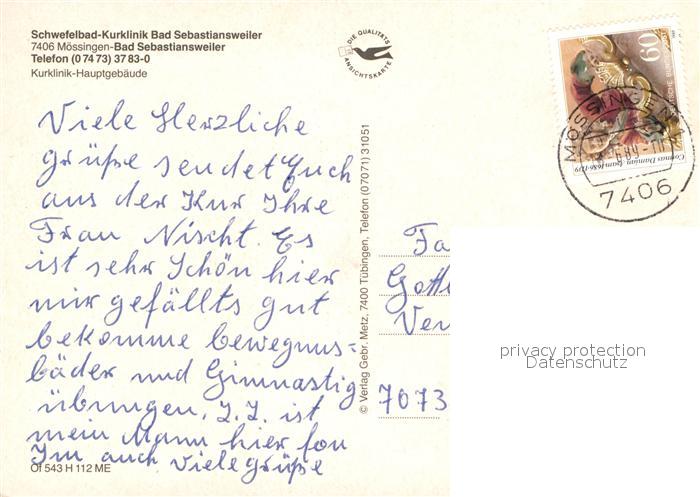 Schwefelbad-Kurklinik Bad Sebastiansweiler
7406 Mössingen-Bad Sebastiansweiler
Telefon (0 74 73) 37 83-0
Kurklinik-Hauptgebäude
DIE QUALITÄTS
ANSICHTSKARTE
60
DEUTSCHE BUNDESPOST
Cosmas Damian Asam 1686-1739
MÖSSINGEN
7406
Viele Herzliche
grüße sendet Euch
aus der Kur Ihre
Frau Nischt. Es
ist sehr Schön hier
mir gefällts gut
bekomme bewegnus=
bäder und Gimnastig
übungen. Z.Z. ist
mein Mann hier fon
Im auch viele grüße
Of 543 H 112 ME
© Verlag Gebr. Metz, 7400 Tübingen, Telefon (07071) 31051
Fa
Gott
Ver
7073
privacy protection
Datenschutz